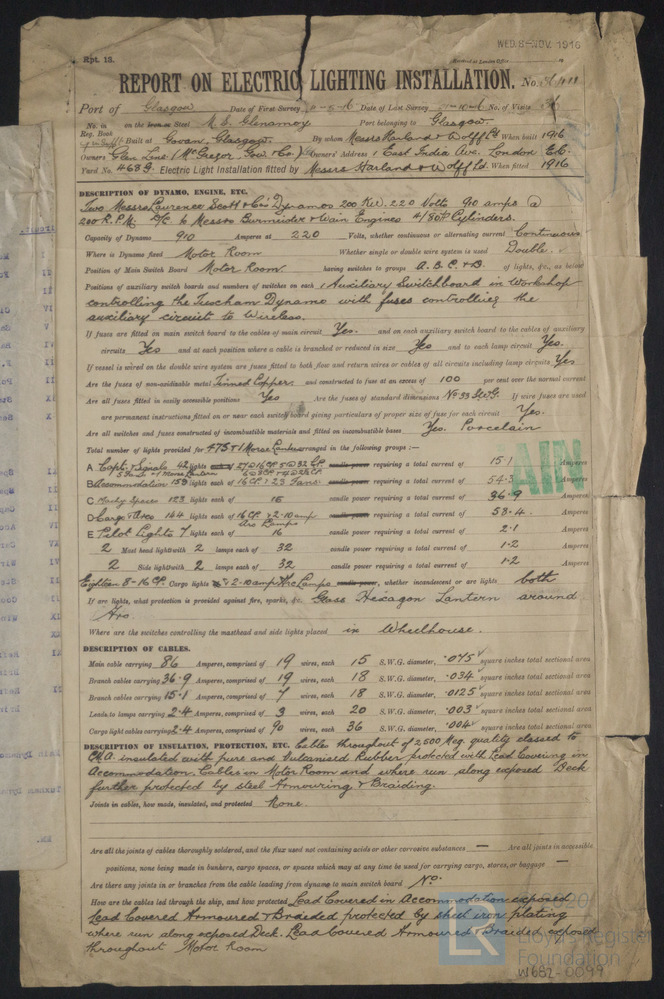 WED. 8-NOV. 1916
Rpt. 13.
REPORT ON ELECTRIC LIGHTING INSTALLATION. No.
Port of Glasgow Date of First Survey Date of Last Survey No. of Visits
No. in on the Iron or Steel M.S. Glenamoy Port belonging to Glasgow
Reg. Book Built at Govan, Glasgow. By whom Messrs Harland & Wolff Ld. When built 1916
Owners Glen Line (McGregor, Gow & Co) Owners' Address 1 East India Ave. London E.C.
Yard No. 468 G. Electric Light Installation fitted by Messrs Harland & Wolff Ld. When fitted 1916
DESCRIPTION OF DYNAMO, ENGINE, ETC.
Two Messrs Laurence Scott & Co's Dynamos 200 Kw. 220 Volts 910 amps @
200 R.P.M. to Messrs Burmeister & Wain Engines Cylinders.
Capacity of Dynamo 910 Amperes at 220 Volts, whether continuous or alternating current Continuous
Where is Dynamo fixed Motor Room Whether single or double wire system is used Double.
Position of Main Switch Board Motor Room. having switches to groups A. B. C. & D. of lights, &c., as below
Positions of auxiliary switch boards and numbers of switches on each 1 Auxiliary Switchboard in Workshop
controlling the Dynamo with fuses controlling the
auxiliary circuit to Wireless.
If fuses are fitted on main switch board to the cables of main circuit Yes. and on each auxiliary switch board to the cables of auxiliary
circuits Yes and at each position where a cable is branched or reduced in size Yes and to each lamp circuit Yes.
If vessel is wired on the double wire system are fuses fitted to both flow and return wires or cables of all circuits including lamp circuits Yes
Are the fuses of non-oxidizable metal Tinned Copper. and constructed to fuse at an excess of 100 per cent over the normal current
Are all fuses fitted in easily accessible positions Yes Are the fuses of standard dimensions No 33 SWG. If wire fuses are used
are permanent instructions fitted on or near each switch board giving particulars of proper size of fuse for each circuit Yes.
Are all switches and fuses constructed of incombustible materials and fitted on incombustible bases Yes. Porcelain
Total number of lights provided for 475 & 1 Morse Lantern arranged in the following groups :—
A Capt. & Signals 42 lights each of candle power requiring a total current of 15.1 Amperes
B Accommodation 159 lights each of 16 CP. & 23 Fans candle power requiring a total current of 54.3 Amperes
C Machy Space 123 lights each of 16 candle power requiring a total current of 36.9 Amperes
D Cargo & Arcs 144 lights each of 16 CP. & 2-10 amp Arc Lamps candle power requiring a total current of 58.4. Amperes
E Pilot Lights 7 lights each of 16 candle power requiring a total current of 2.1 Amperes
2 Mast head light with 2 lamps each of 32 candle power requiring a total current of 1.2 Amperes
2 Side light with 2 lamps each of 32 candle power requiring a total current of 1.2 Amperes
Eighteen 8-16 CP. Cargo lights & 2-10 amp Arc Lamps candle power, whether incandescent or arc lights both
If arc lights, what protection is provided against fire, sparks, &c. Glass Hexagon Lantern around
Arc.
Where are the switches controlling the masthead and side lights placed in Wheelhouse.
DESCRIPTION OF CABLES.
Main cable carrying 86 Amperes, comprised of 19 wires, each 15 S.W.G. diameter, .075 square inches total sectional area
Branch cables carrying 36.9 Amperes, comprised of 19 wires, each 18 S.W.G. diameter, .034 square inches total sectional area
Branch cables carrying 15.1 Amperes, comprised of 7 wires, each 18 S.W.G. diameter, .0125 square inches total sectional area
Leads to lamps carrying 2.4 Amperes, comprised of 3 wires, each 20 S.W.G. diameter, .003 square inches total sectional area
Cargo light cables carrying 2.4 Amperes, comprised of 90 wires, each 36 S.W.G. diameter, .004 square inches total sectional area
DESCRIPTION OF INSULATION, PROTECTION, ETC. Cables throughout of 2500 Meg. quality classed to
C.M.A. insulated with pure and Vulcanised Rubber protected with Lead Covering in
Accommodation. Cables in Motor Room and where run along exposed Deck
further protected by steel Armouring & Braiding.
Joints in cables, how made, insulated, and protected None.
Are all the joints of cables thoroughly soldered, and the flux used not containing acids or other corrosive substances — Are all joints in accessible
positions, none being made in bunkers, cargo spaces, or spaces which may at any time be used for carrying cargo, stores, or baggage —
Are there any joints in or branches from the cable leading from dynamo to main switch board No.
How are the cables led through the ship, and how protected Lead Covered in Accommodation exposed
Lead Covered Armoured & Braided protected by sheet iron plating
where run along exposed Deck. Lead Covered Armoured & Braided exposed
throughout Motor Room
© 2020
Lloyd's Register
Foundation
W682-0099